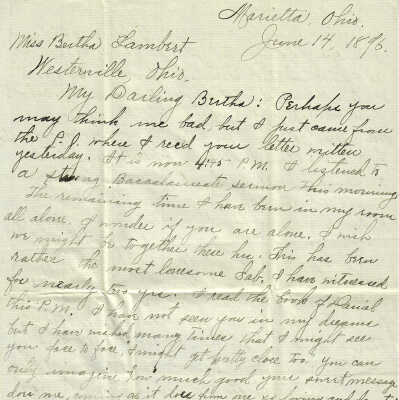 Marietta, Ohio.
June 14, 1896.
Miss Bertha Lambert
Westerville, Ohio.
My Darling Bertha: Perhaps you
may think me bad, but I just came from
the P.O. where I recd your letter written
yesterday. It is now 4:45 P.M. I listened to
a strong Baccalaureate sermon this morning
The remaining time I have been in my room
all alone. I wonder if you are alone, I wish
we might be together these hrs. This has been
rather the most lonesome Sab. I have witnessed
for nearly two yrs. I read the book of Daniel
this P.M. I have not seen you in my dreams
but I have wished many times that I might see
you face to face, I might get pretty close too. you can
only imagin how much good your sweet message
done me, coming as it does from one so loving and